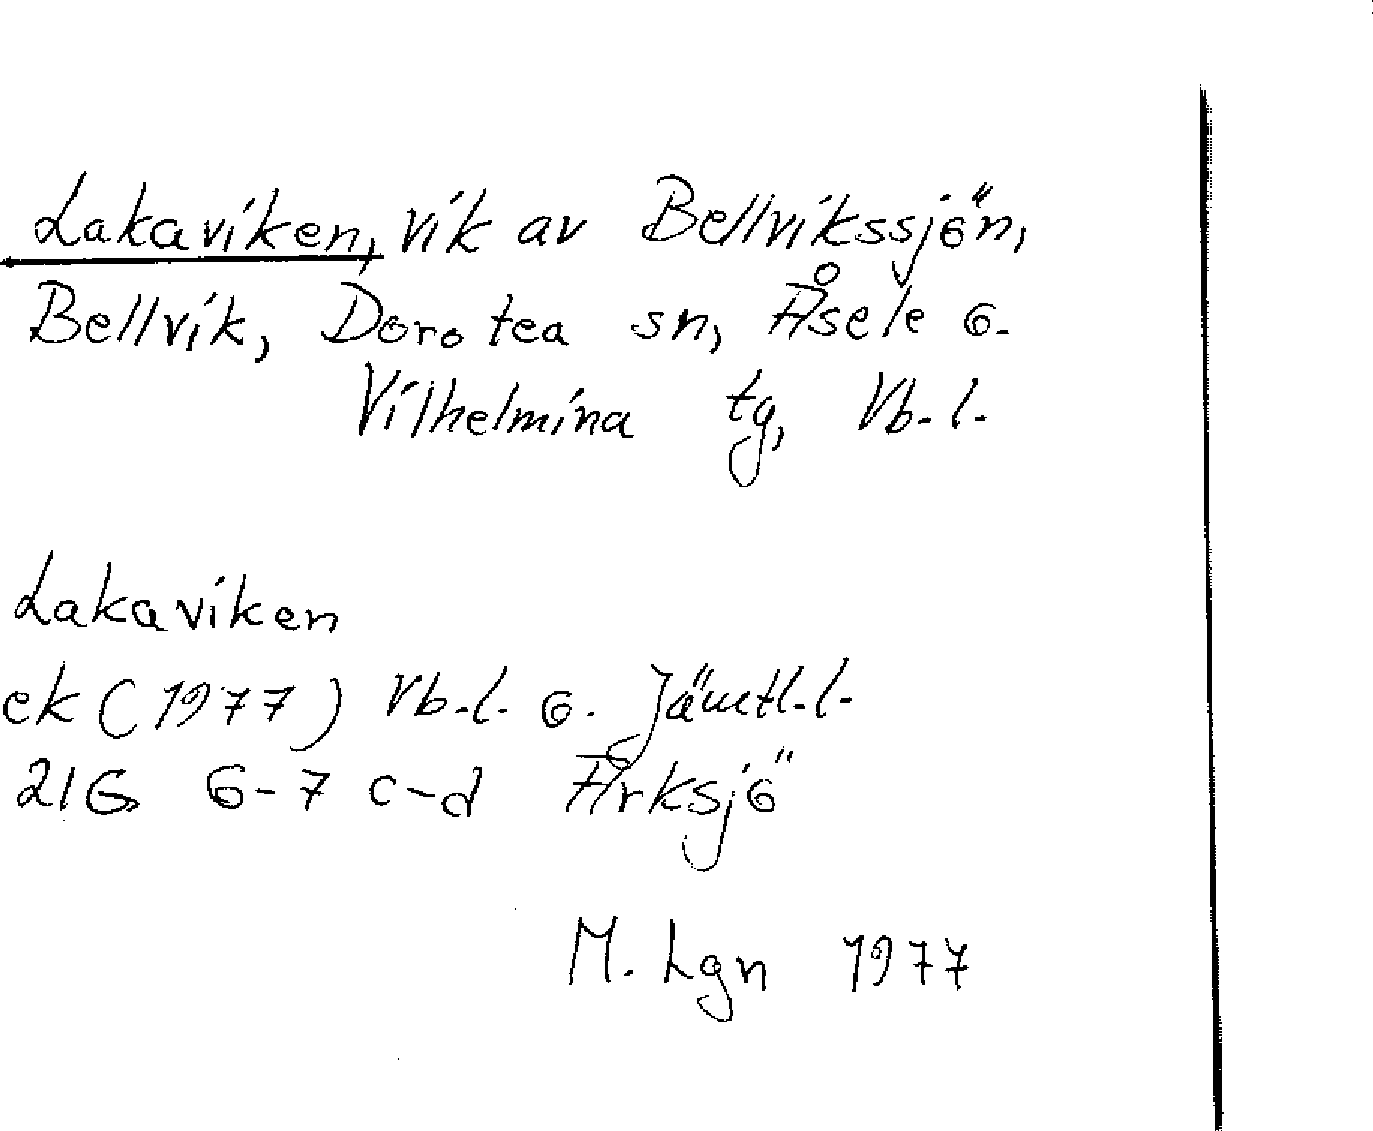 Lakaviken, vik av Bellvikssjön,
Bellvik, Dorotea sn, Åsele o.
Vilhelmina tg, Vb. l.
Lakaviken
ek (1977) Vb. l. o. Jämtl. l.
21G 6-7 c-d Årksjö
M. Lgn 1977